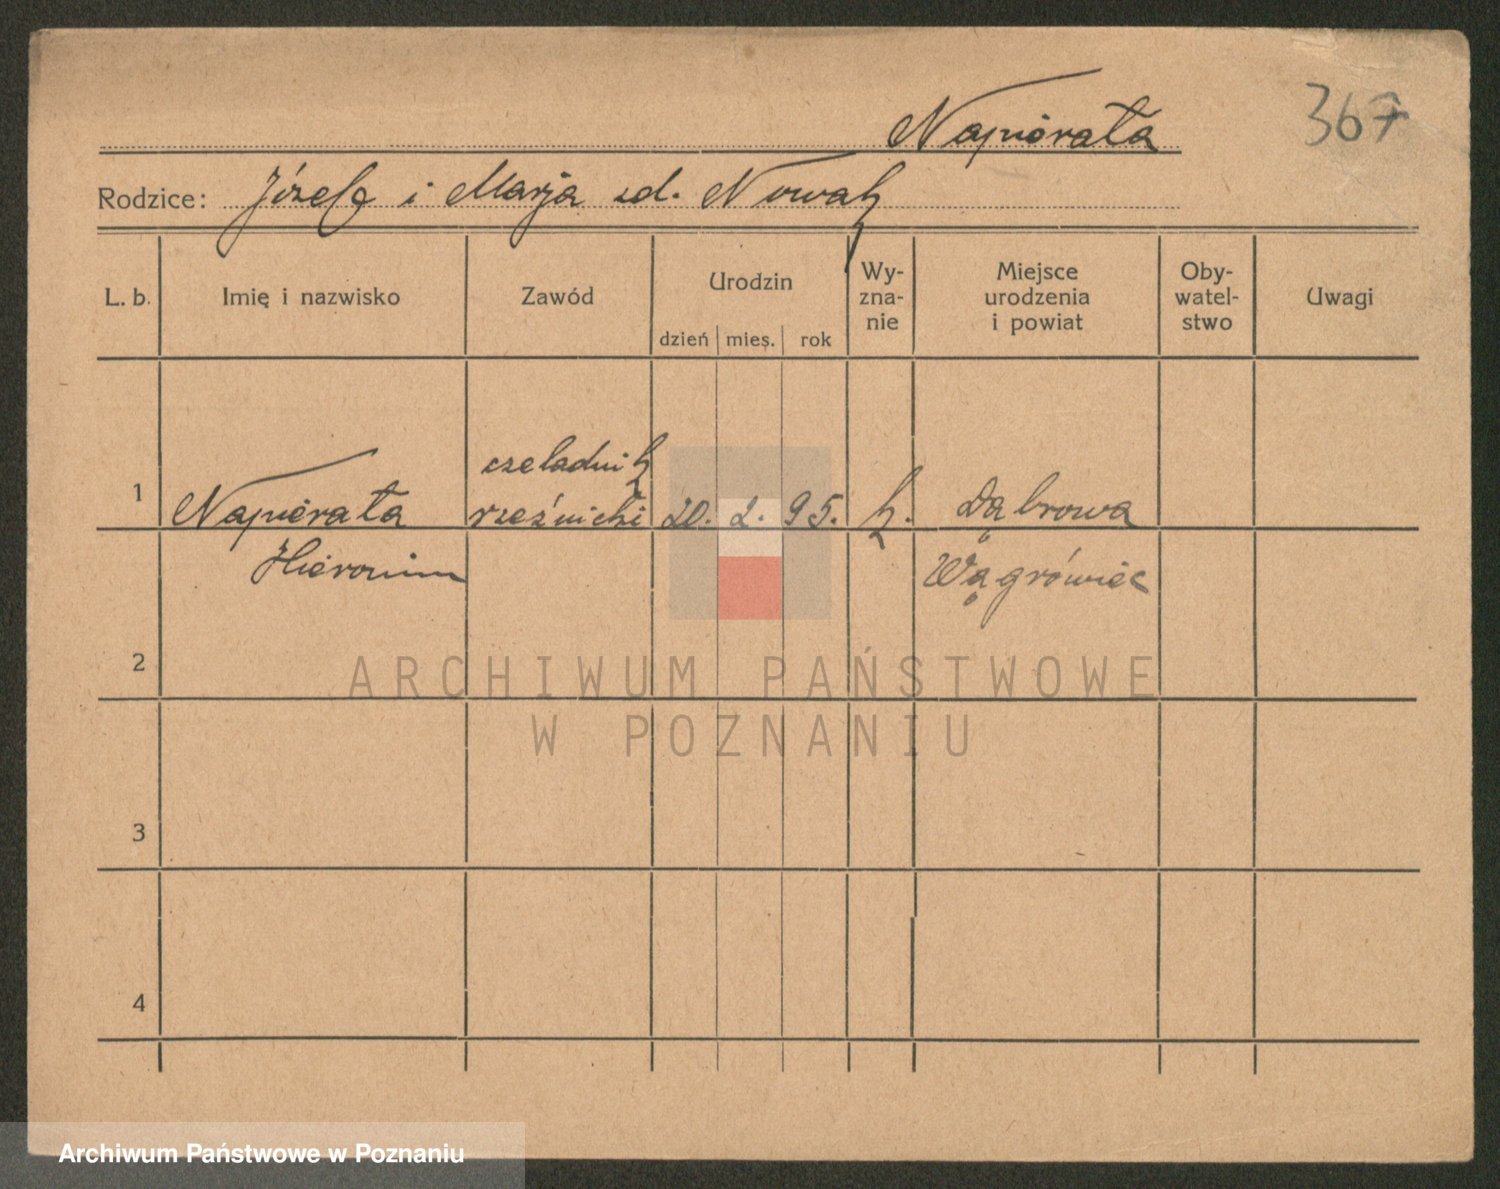 Napierała 367
Rodzice: Józef i Marja zd. Nowak
L. b. Imię i nazwisko Zawód Urodzin dzień mies. rok Wy-zna-nie Miejsce urodzenia i powiat Oby-watel-stwo Uwagi
czeladnik
1 Napierała rzeźnicki 20. 2. 95. k. Dąbrowa
Hieronim Wągrówiec
2
ARCHIWUM PAŃSTWOWE
W POZNANIU
3
4
Archiwum Państwowe w Poznaniu